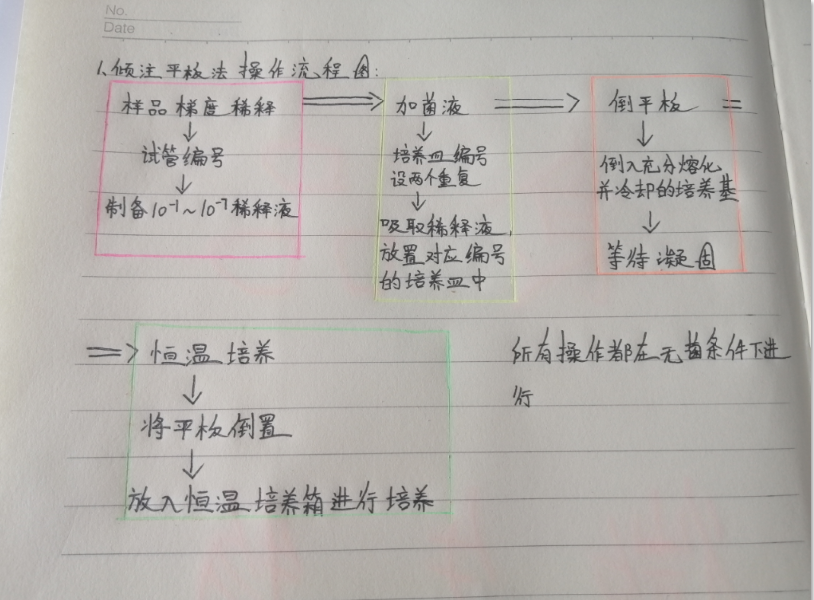 No.
Date
1、倾注平板法操作流程图:
样品梯度稀释
↓
试管编号
↓
制备10⁻¹~10⁻⁷稀释液
⇒
加菌液
↓
培养皿编号
设两个重复
↓
吸取稀释液,
放置对应编号
的培养皿中
⇒
倒平板
↓
倒入充分熔化
并冷却的培养基
↓
等待凝固
⇒ 恒温培养
↓
将平板倒置
↓
放入恒温培养箱进行培养
所有操作都在无菌条件下进
行